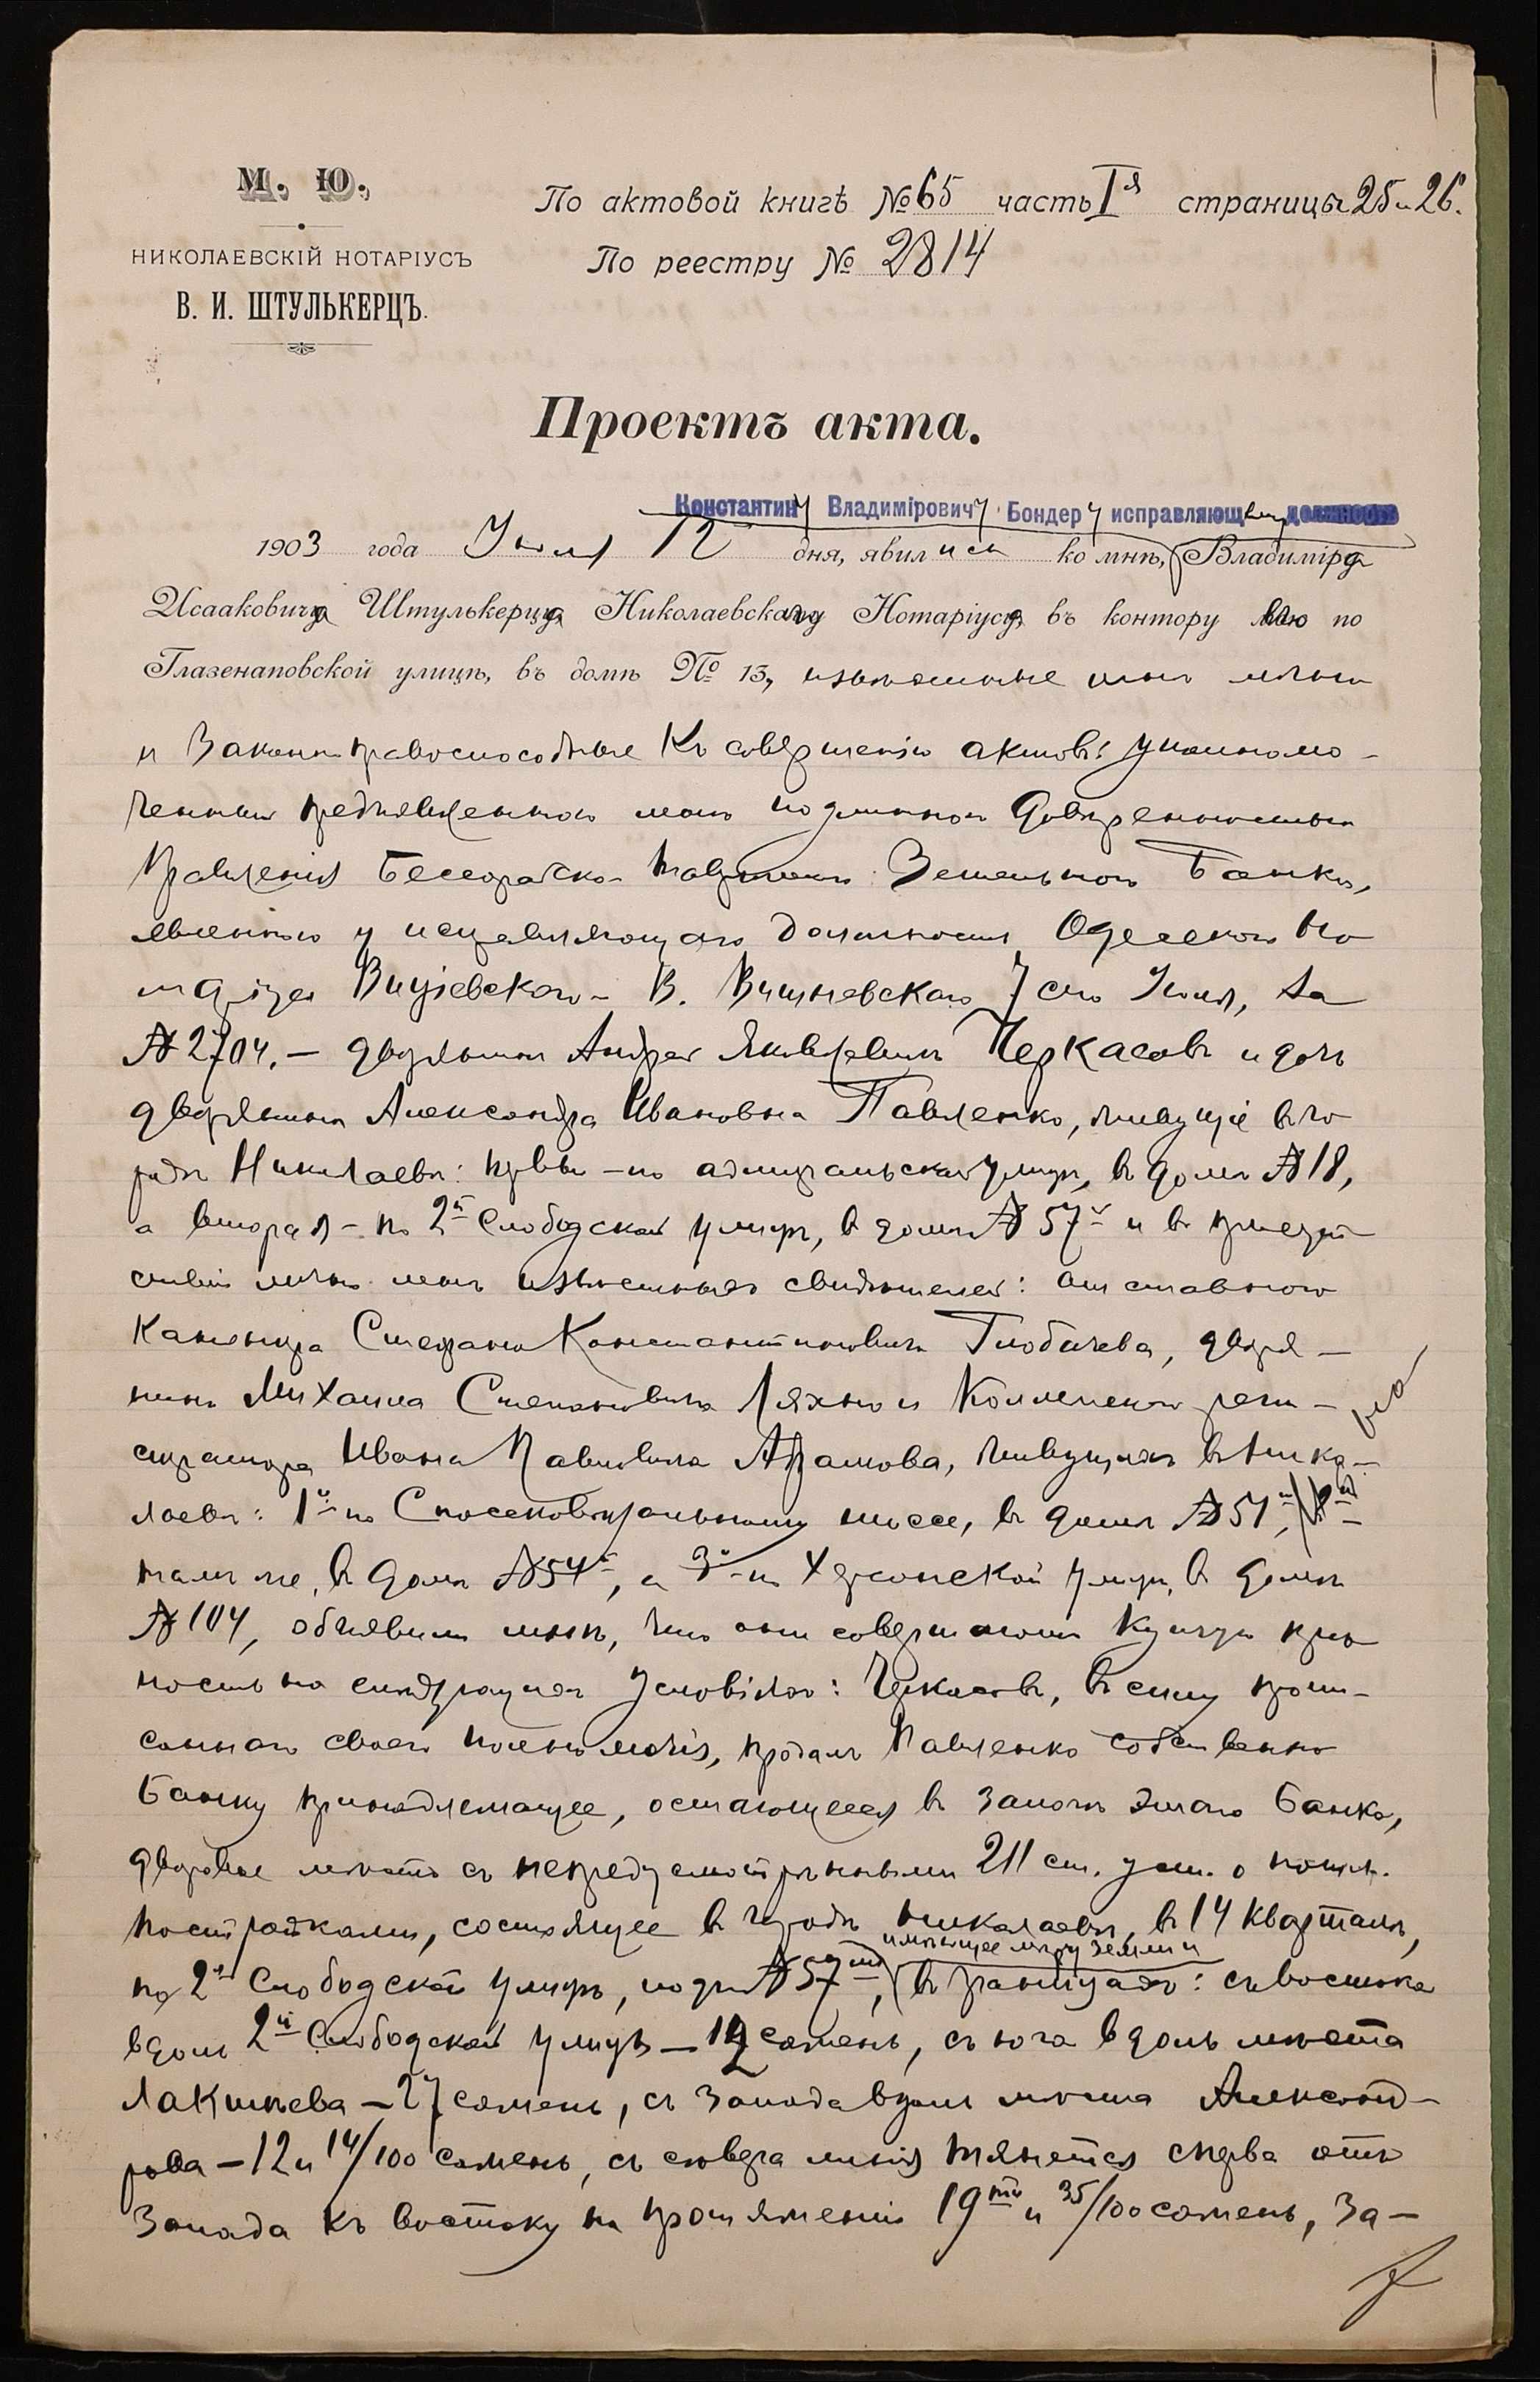 М. Ю.
НИКОЛАЕВСКІЙ НОТАРІУСЪ
В. И. ШТУЛЬКЕРЦЪ.
По актовой книгѣ № 65 часть I я страницы 25 и 26.
По реестру № 2814
Проектъ акта.
Константину Владиміровичу Бондеру исправляющему должность
1903 года Іюля 12 дня, явились ко мнѣ, Владиміра
Исааковича Штулькерца Николаевскаго Нотаріуса въ контору его по
Глазенаповской улицѣ, въ домѣ № 13, извѣстные мнѣ лично
и законно правоспособные къ совершенію актовъ: уполномо-
ченный предъявленною мнѣ подлинною довѣренностью
Правленія Бессарабско-Таврическаго Земельнаго Банка,
явленною у исправляющаго должность Одесскаго Но
таріуса В. Вишневскаго 7 сего Іюля, за
№ 2704. — дворянинъ Андрей Яковлевичъ Черкасовъ и дочь
дворянина Александра Ивановна Павленко, живущіе въ го
родѣ Николаевѣ: первый - по Адмиральской улицѣ, въ домѣ № 18,
а вторая - по 2й Слободской улицѣ, въ домѣ № 57й и въ присут
ствіи лично мнѣ извѣстныхъ свидѣтелей: отставного
Константиновича дворя-
нина Михаила Степановича Ляхно и Коллежскаго реги-
стратора Ивана Павловича Абрамова, живущихъ въ Нико-
лаевѣ: 1й по шоссе, въ домѣ № 51й, 2й
тамъ же, въ домѣ № 54й, а 3й по Херсонской улицѣ, въ домѣ
№ 104, объявили мнѣ, что они совершаютъ купчую крѣ
пость на слѣдующихъ условіяхъ: Черкасовъ, въ силу пропи-
саннаго своего полномочія, продалъ Павленко собственно
Банку принадлежащее, остающееся въ залогѣ этого Банка,
дворовое мѣсто съ непредусмотрѣнными 211 ст. уст. о пошл.
постройками, состоящее въ городѣ Николаевѣ, въ 14 кварталѣ,
имѣющее мѣру земли
по 2й Слободской улицѣ, подъ № 57мъ, въ границахъ: съ востока
вдоль 2й Слободской улицы — 12 сажень, съ юга вдоль мѣста
Лакшеева — 27 сажень, съ запада вдоль мѣста Александ-
рова — 12 и 14/100 сажень, съ сѣвера линія тянется сперва отъ
запада къ востоку на протяженіи 19ти и 35/100 сажень, за-